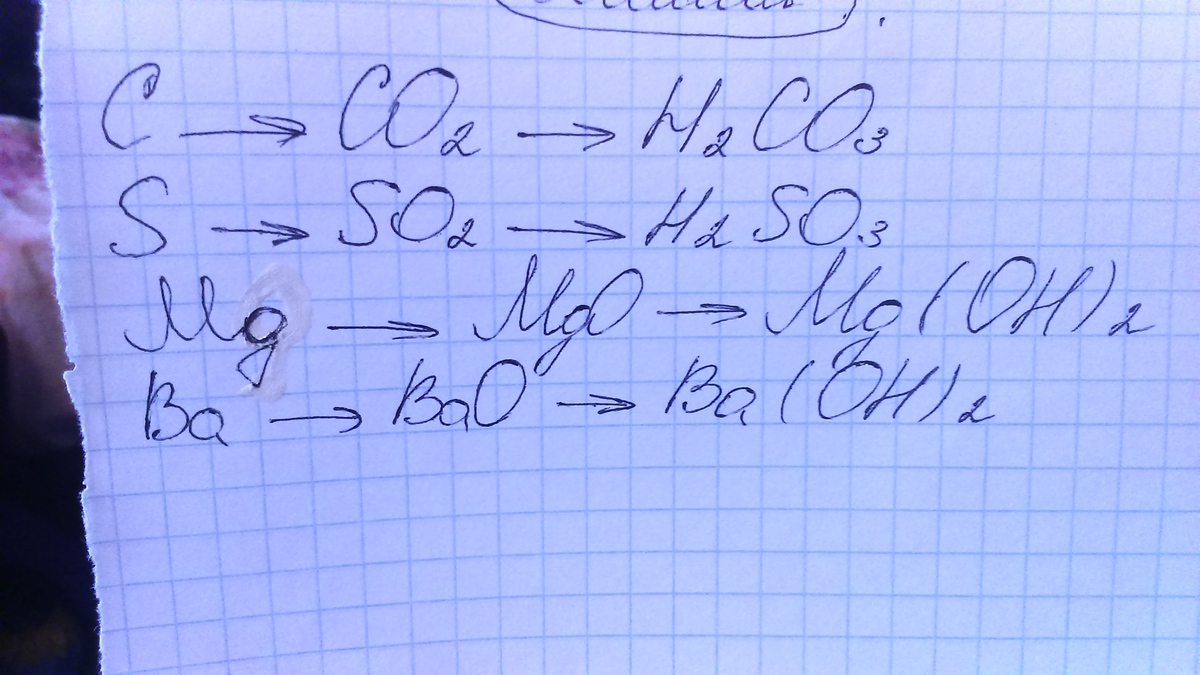 C → CO₂ → H₂CO₃
S → SO₂ → H₂SO₃
Mg → MgO → Mg(OH)₂
Ba → BaO → Ba(OH)₂